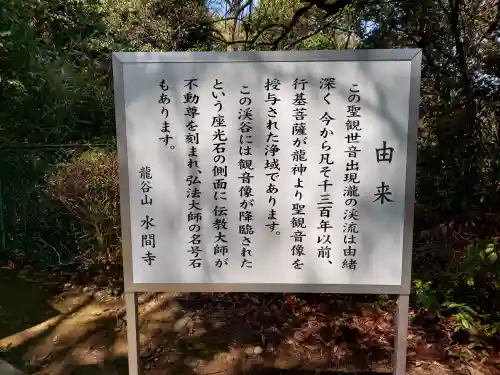 由来
この聖観世音出現瀧の渓流は由緒
深く今から凡そ千三百年以前、
行基菩薩が龍神より聖観音像を
授与された浄域であります。
この渓谷には観音像が降臨された
という座光石の側面に伝教大師が
不動尊を刻まれ、弘法大師の名号石
もあります。
龍谷山 水間寺